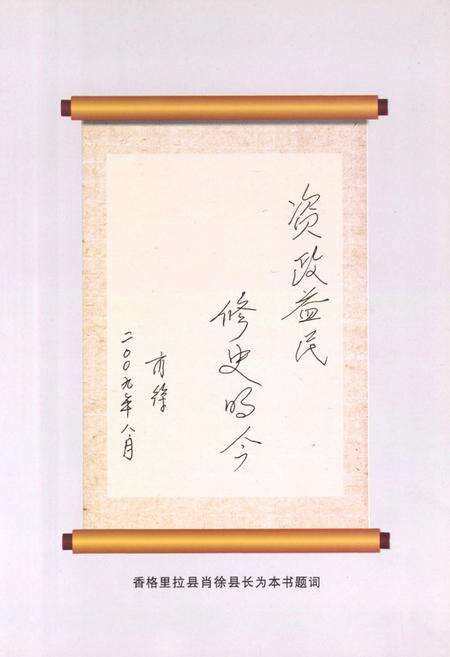 资政益民
修史明今
肖徐
二〇〇九年八月
香格里拉县肖徐县长为本书题词